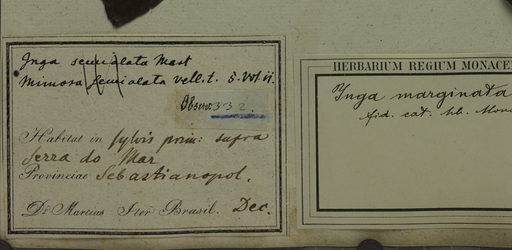 Inga semialata Mart
Mimosa semialata Vell. t. 5. Vol. 11.
Obser. 332.
Habitat in sylvis prim: supra
Serra do Mar
Provinciae Sebastianopol.
Dr. Martius Iter Brasil. Dec.
HERBARIUM REGIUM MONACE
Inga marginata
fid. cat. hb. Mon